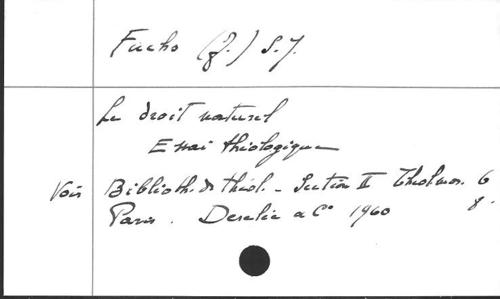 Fuchs (J.) S.J.
Le droit naturel
Essai théologique
Voir Biblioth. de théol. - Section II Theol mor. 6
Paris. Desclée & Co 1960 8.